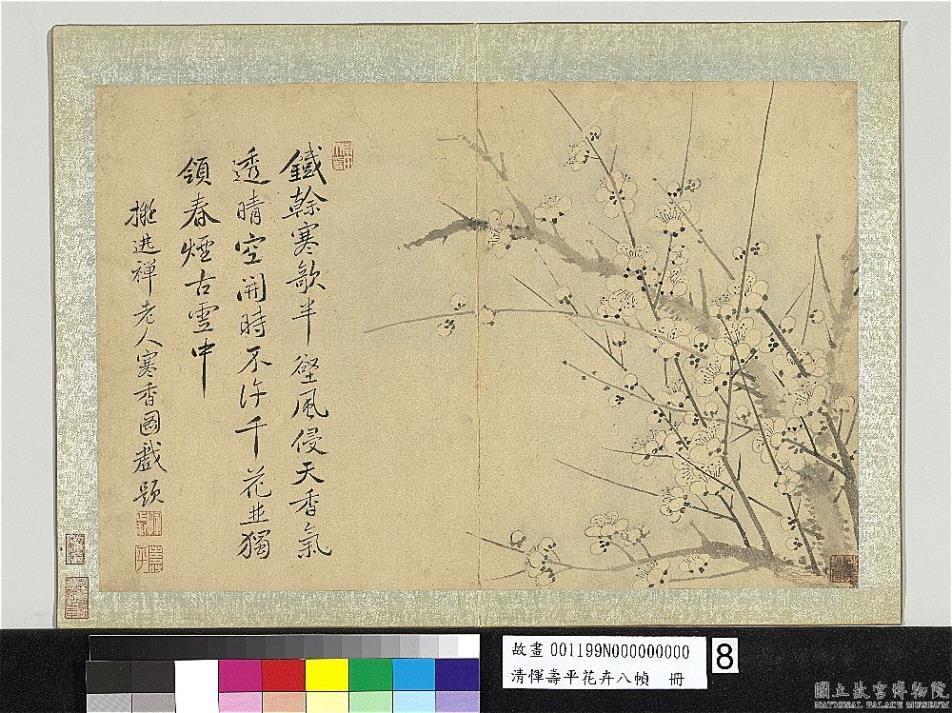 鐵幹寒欹半壁風侵天香氣
透晴空開時不許千花並獨
領春煙古雪中
擬逃禪老人寒香圖戲題
故畫 001199N000000000
清惲壽平花卉八幀 冊
8
國立故宮博物院
NATIONAL PALACE MUSEUM